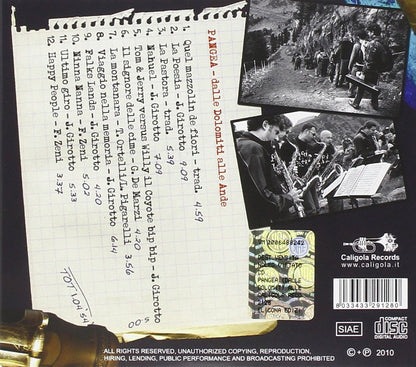 PANGEA - dalle Dolomiti alle Ande
1. Quel mazzolin de fiori - trad. 4.59
2. La Poesia - J. Girotto 9.09
3. La Pastora - trad. 5.39
4. Nahuel - J. Girotto 7.09
5. Tom & Jerry versus Willy il Coyote bip bip - J. Girotto 5.00
6. Il signore delle cime - G. De Marzi 4.20
7. La montanara - T. Ortelli/L. Pigarello 3.56
8. Viaggio nella memoria - J. Girotto 6.14
9. Falks Lands - J. Girotto 4.20
10. Ninna Nanna - F. Zeni 5.02
11. Ultimo giro - J. Girotto 5.33
12. Happy People - F. Zeni 3.37
Caligola Records
www.caligola.it
8033433291280
SIAE
COMPACT
disc
DIGITAL AUDIO
ALL RIGHTS RESERVED, UNAUTHORIZED COPYING, REPRODUCTION,
HIRING, LENDING, PUBLIC PERFORMANCE AND BROADCASTING PROHIBITED
© + ℗ 2010